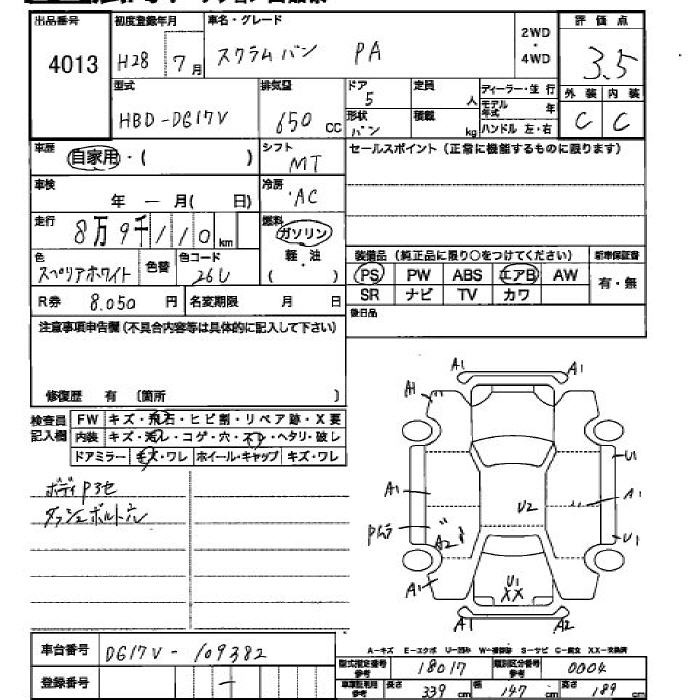 出品番号 初度登録年月 車名・グレード 2WD・4WD 評価点
4013 H28 7月 スクラムバン PA 3.5
型式 排気量 ドア 定員 ディーラー・並行 外装 内装
HBD-DG17V 650cc 5 人 モデル年式 年 C C
形状 バン 積載 kg ハンドル 左・右
車歴 自家用・( ) シフト MT セールスポイント(正常に機能するものに限ります)
車検 年 ー 月( 日) 冷房 AC
走行 8万9千110km 燃料 ガソリン
軽・油
( )
色 スペリアホワイト 色替 色コード 26U
装備品(純正品に限り○をつけてください) 新車保証書
PS PW ABS エアB AW 有・無
SR ナビ TV カワ
R券 8.050円 名変期限 月 日 後日品
注意事項申告欄(不具合内容等は具体的に記入して下さい)
修復歴 有 〔箇所 〕
検査員記入欄 FW キズ・飛石・ヒビ割・リペア跡・X要
内装 キズ・汚レ・コゲ・穴・ヘタリ・破レ
ドアミラー キズ・ワレ ホイール・キャップ キズ・ワレ
ボディPキセ
ダッシュボルト穴
A1
A1
A1
U1
A1
A1
U2
Pムラ
A2
U1
A1
U1
XX
A1
A2
A2
A-キズ E-エクボ U-凹み W-補修跡 S-サビ C-腐食 XX-交換済
車台番号 DG17V-109382
型式指定番号 参考 18017 類別区分番号 参考 0004
登録番号 ー
車車証記載用 参考 長さ 339cm 幅 147cm 高さ 189cm